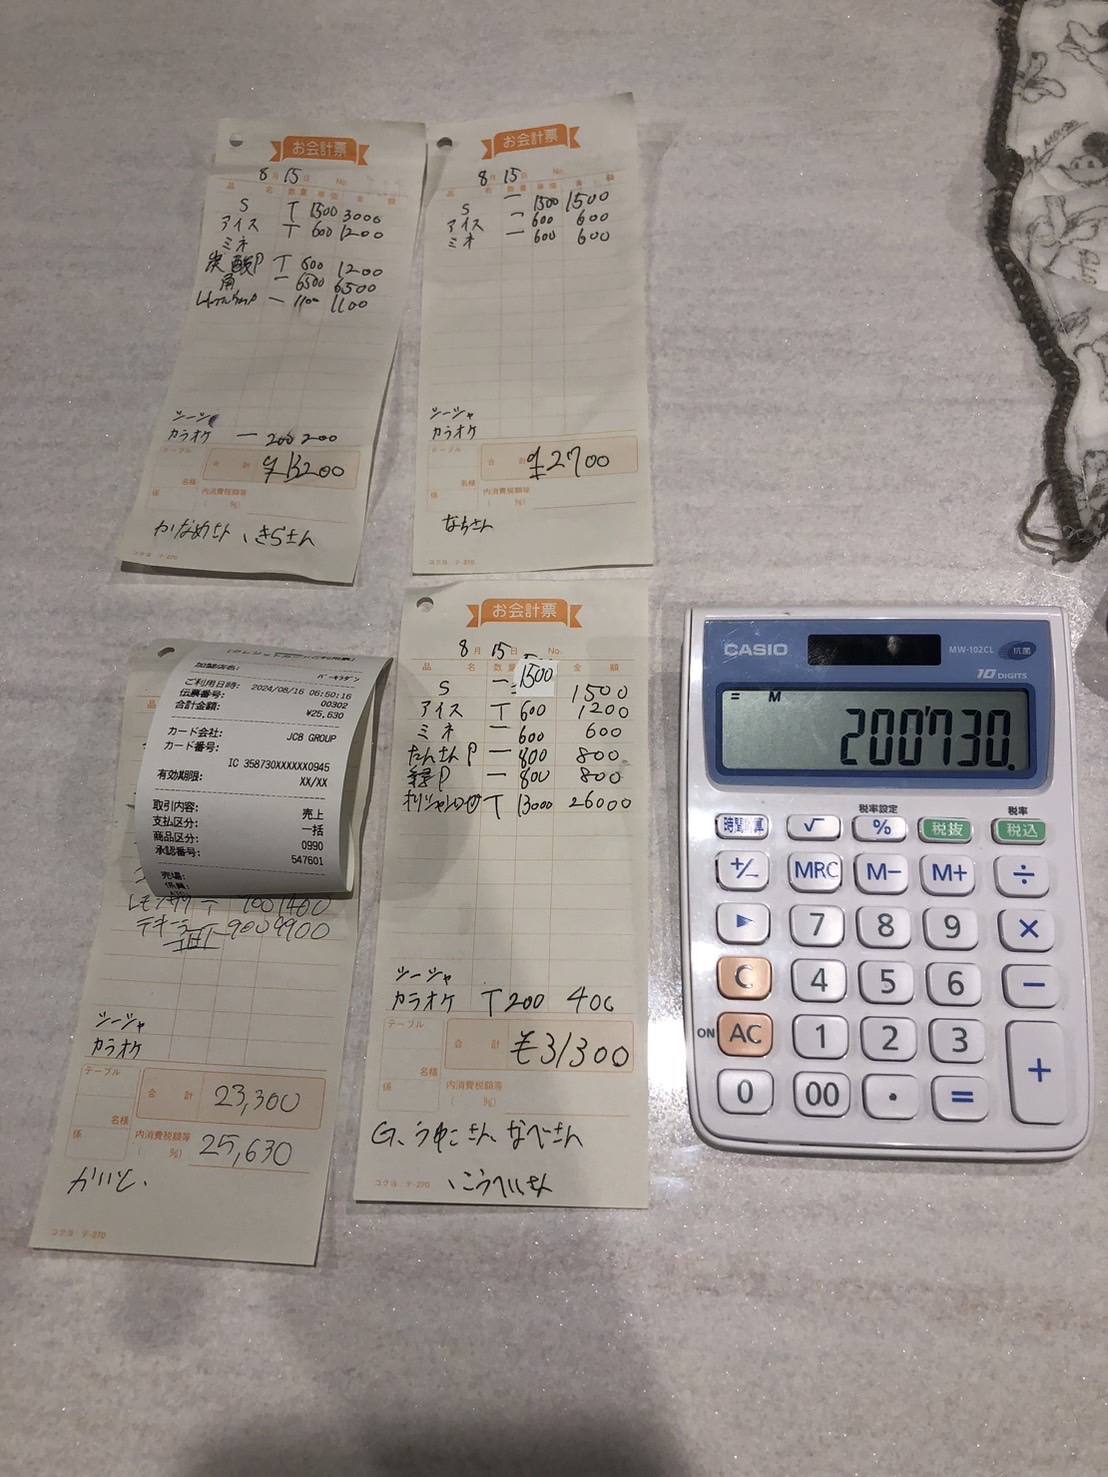 お会計票
8月 15日 No.
品 名 数量 単価 金 額
S T 1500 3000
アイス T 600 1200
ミネ
炭酸P T 600 1200
角 一 6500 6500
一 1100 1100
シーシャ
カラオケ 一 200 200
テーブル
合 計 ¥13200
名様
係 内消費税額等
( %)
かなめさん、きらさん
コクヨ テ-270
お会計票
8月 15日 No.
品 名 数量 単価 金 額
S 一 1500 1500
アイス 一 600 600
ミネ 一 600 600
シーシャ
カラオケ
テーブル
合 計 ¥2700
名様
係 内消費税額等
( %)
なちさん
コクヨ テ-270
(クレジットカードご利用票)
加盟店名:
バーキラダン
ご利用日時: 2024/08/16 06:50:16
伝票番号: 00302
合計金額: ¥25,630
カード会社: JCB GROUP
カード番号:
IC 358730XXXXXX0945
有効期限: XX/XX
取引内容: 売上
支払区分: 一括
商品区分: 0990
承認番号: 547601
売場:
係員:
レモンサワー T 700 1400
テキーラ 900 9900
シーシャ
カラオケ
テーブル
合 計 23,300
名様
係 内消費税額等
( %) 25,630
かいと、
コクヨ テ-270
お会計票
8月 15日 No.
品 名 数量 金 額
S 一 1500 1500
アイス T 600 1200
ミネ 一 600 600
たんさんP 一 800 800
緑P 一 800 800
オリシャン T 13000 26000
シーシャ
カラオケ T 200 400
テーブル
合 計 ¥31300
名様
係 内消費税額等
( %)
G、うめこさん、なべさん
、こうへいさん
コクヨ テ-270
CASIO MW-102CL 抗菌
10 DIGITS
= M
200'730.
税率設定 税率
時間計算 √ % 税抜 税込
+/- MRC M- M+ ÷
▶ 7 8 9 ×
C 4 5 6 −
ON AC 1 2 3 +
0 00 • =